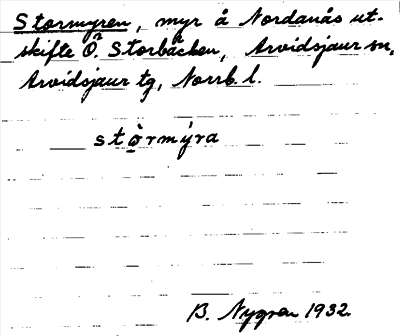 Stormyren, myr å Nordanås ut-
skifte Ö. Storbäcken, Arvidsjaur sn,
Arvidsjaur tg, Norrb. l.
stòrmýra
B. Nygren 1932.